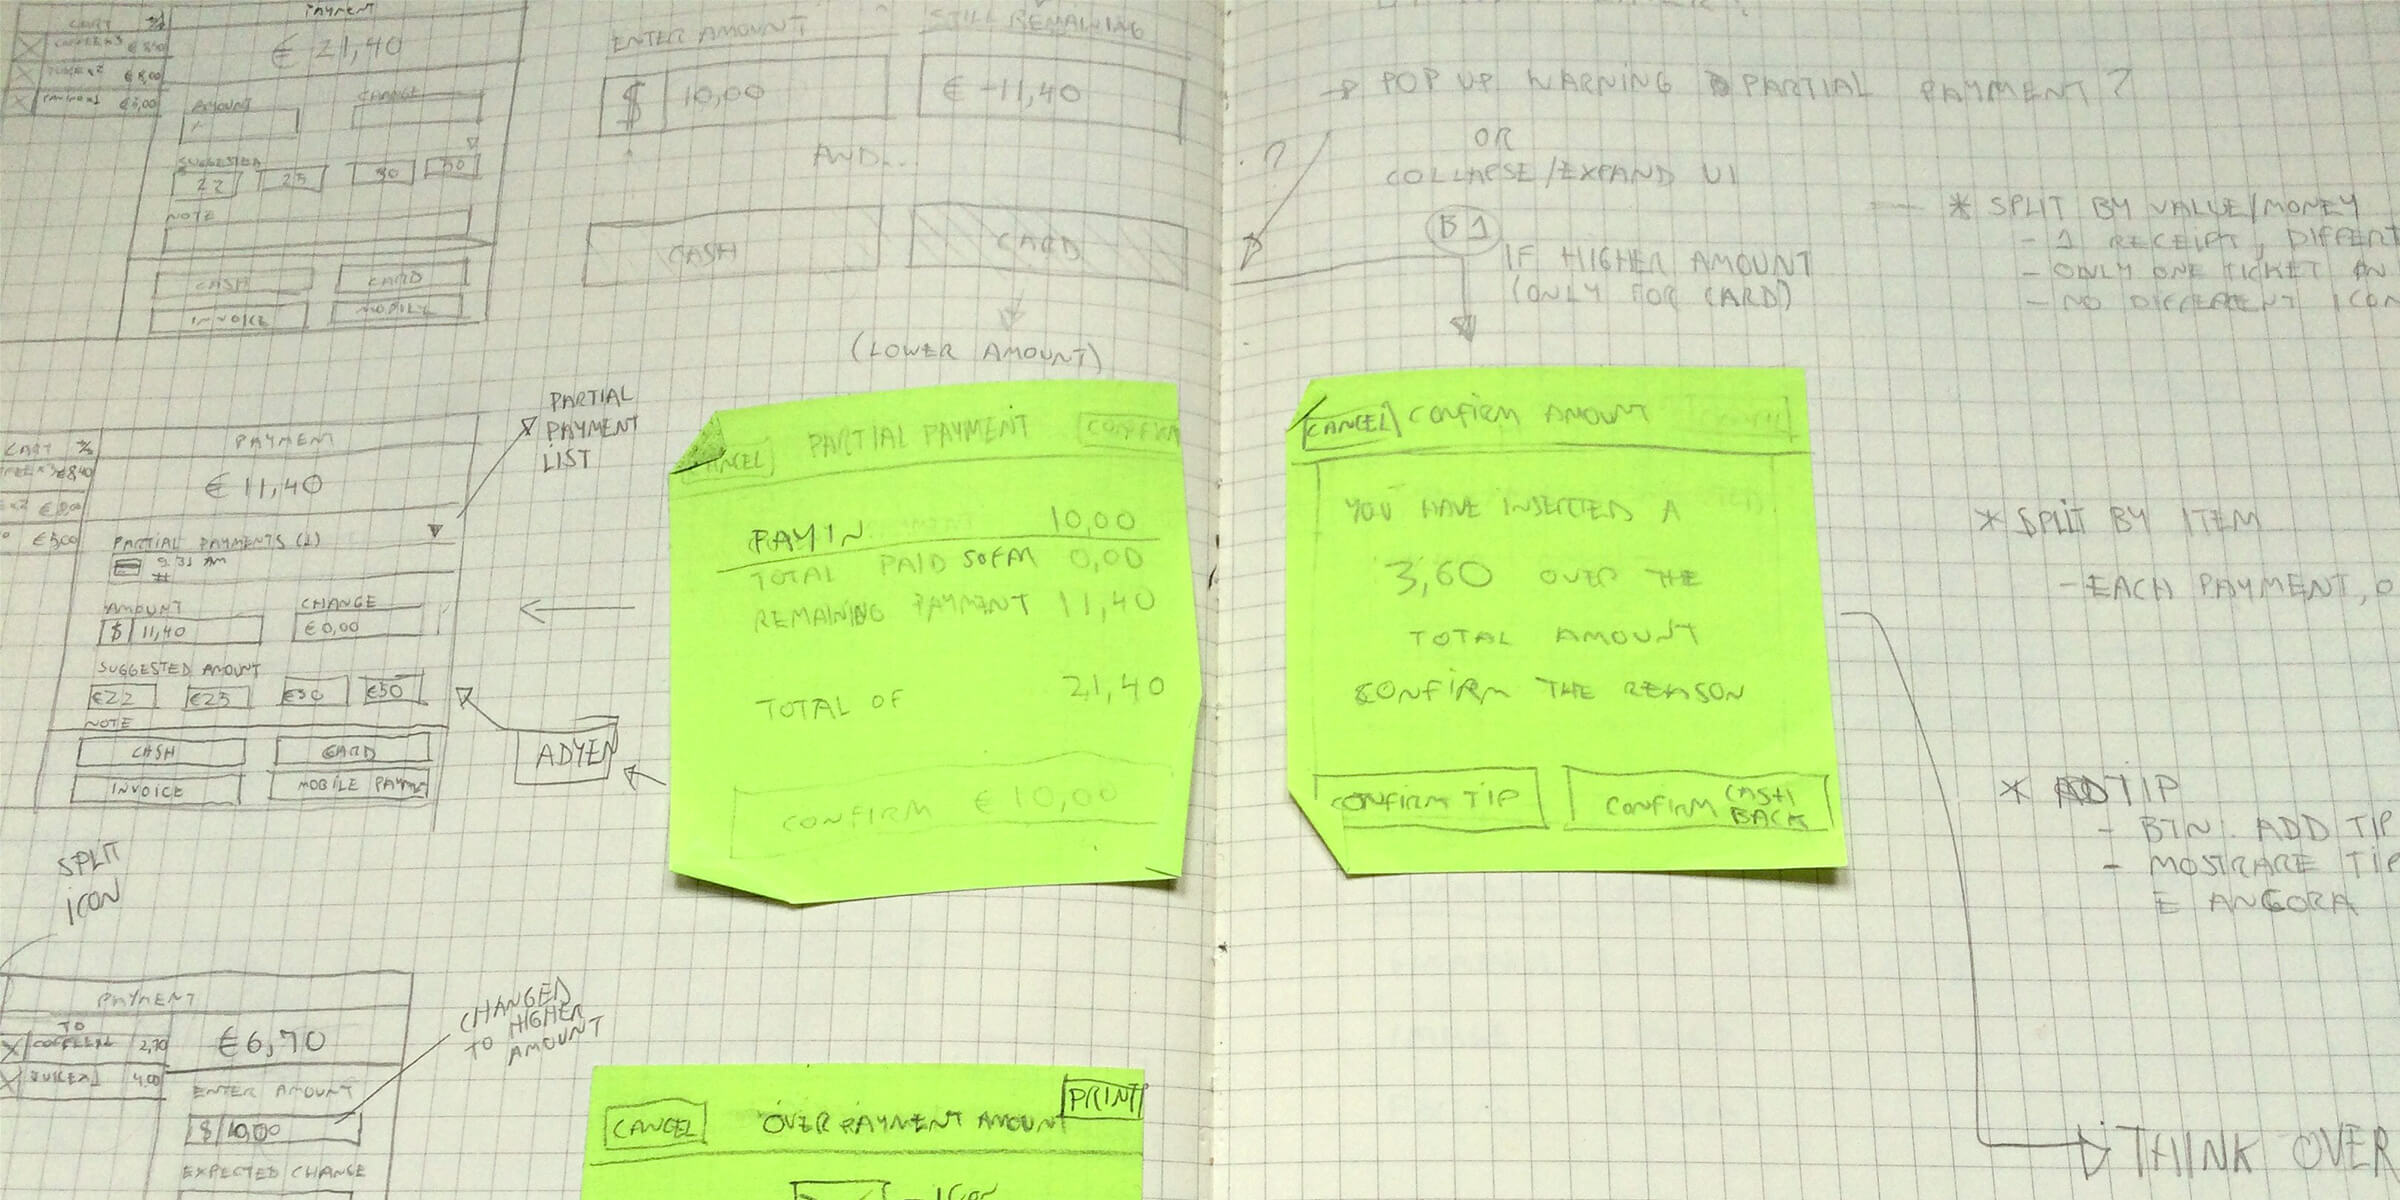 CART
PAYMENT
€ 21,40
€ 8,00
AMOUNT
CHANGE
SUGGESTED
22
25
30
50
NOTE
CASH
CARD
INVOICE
MOBILE
ENTER AMOUNT
STILL REMAINING
$ 10,00
€ -11,40
AND..
CASH
CARD
(LOWER AMOUNT)
POP UP WARNING PARTIAL PAYMENT ?
OR
COLLAPSE/EXPAND UI
?
B1
IF HIGHER AMOUNT
(ONLY FOR CARD)
* SPLIT BY VALUE/MONEY
- 1 RECEIPT, DIFFERT
- ONLY ONE TICKET
- NO DIFFERENT ICON
CART
PAYMENT
€ 11,40
€8,40
€ 8,00
€5,00
PARTIAL
PAYMENT
LIST
PARTIAL PAYMENTS (1)
9:33 AM
AMOUNT
CHANGE
$ 11,40
€0,00
SUGGESTED AMOUNT
€22
€25
€30
€50
NOTE
CASH
CARD
INVOICE
MOBILE PAYME
ADYEN
CANCEL
PARTIAL PAYMENT
CONFIRM
PAY IN 10,00
TOTAL PAID SOFAR 0,00
REMAINING PAYMENT 11,40
TOTAL OF 21,40
CONFIRM € 10,00
CANCEL
CONFIRM AMOUNT
YOU HAVE INSERTED A
3,60 OVER THE
TOTAL AMOUNT
CONFIRM THE REASON
CONFIRM TIP
CONFIRM CASH
BACK
* SPLIT BY ITEM
- EACH PAYMENT, O
* ADTIP
- BTN. ADD TIP
- MOSTRARE TIP
E ANCORA
THINK OVER
SPLIT
ICON
PAYMENT
TO
€6,70
2,70
4,00
ENTER AMOUNT
$ 10,00
EXPECTED CHANGE
CHANGED
TO HIGHER
AMOUNT
CANCEL
OVER PAYMENT AMOUNT
PRINT
- ICON